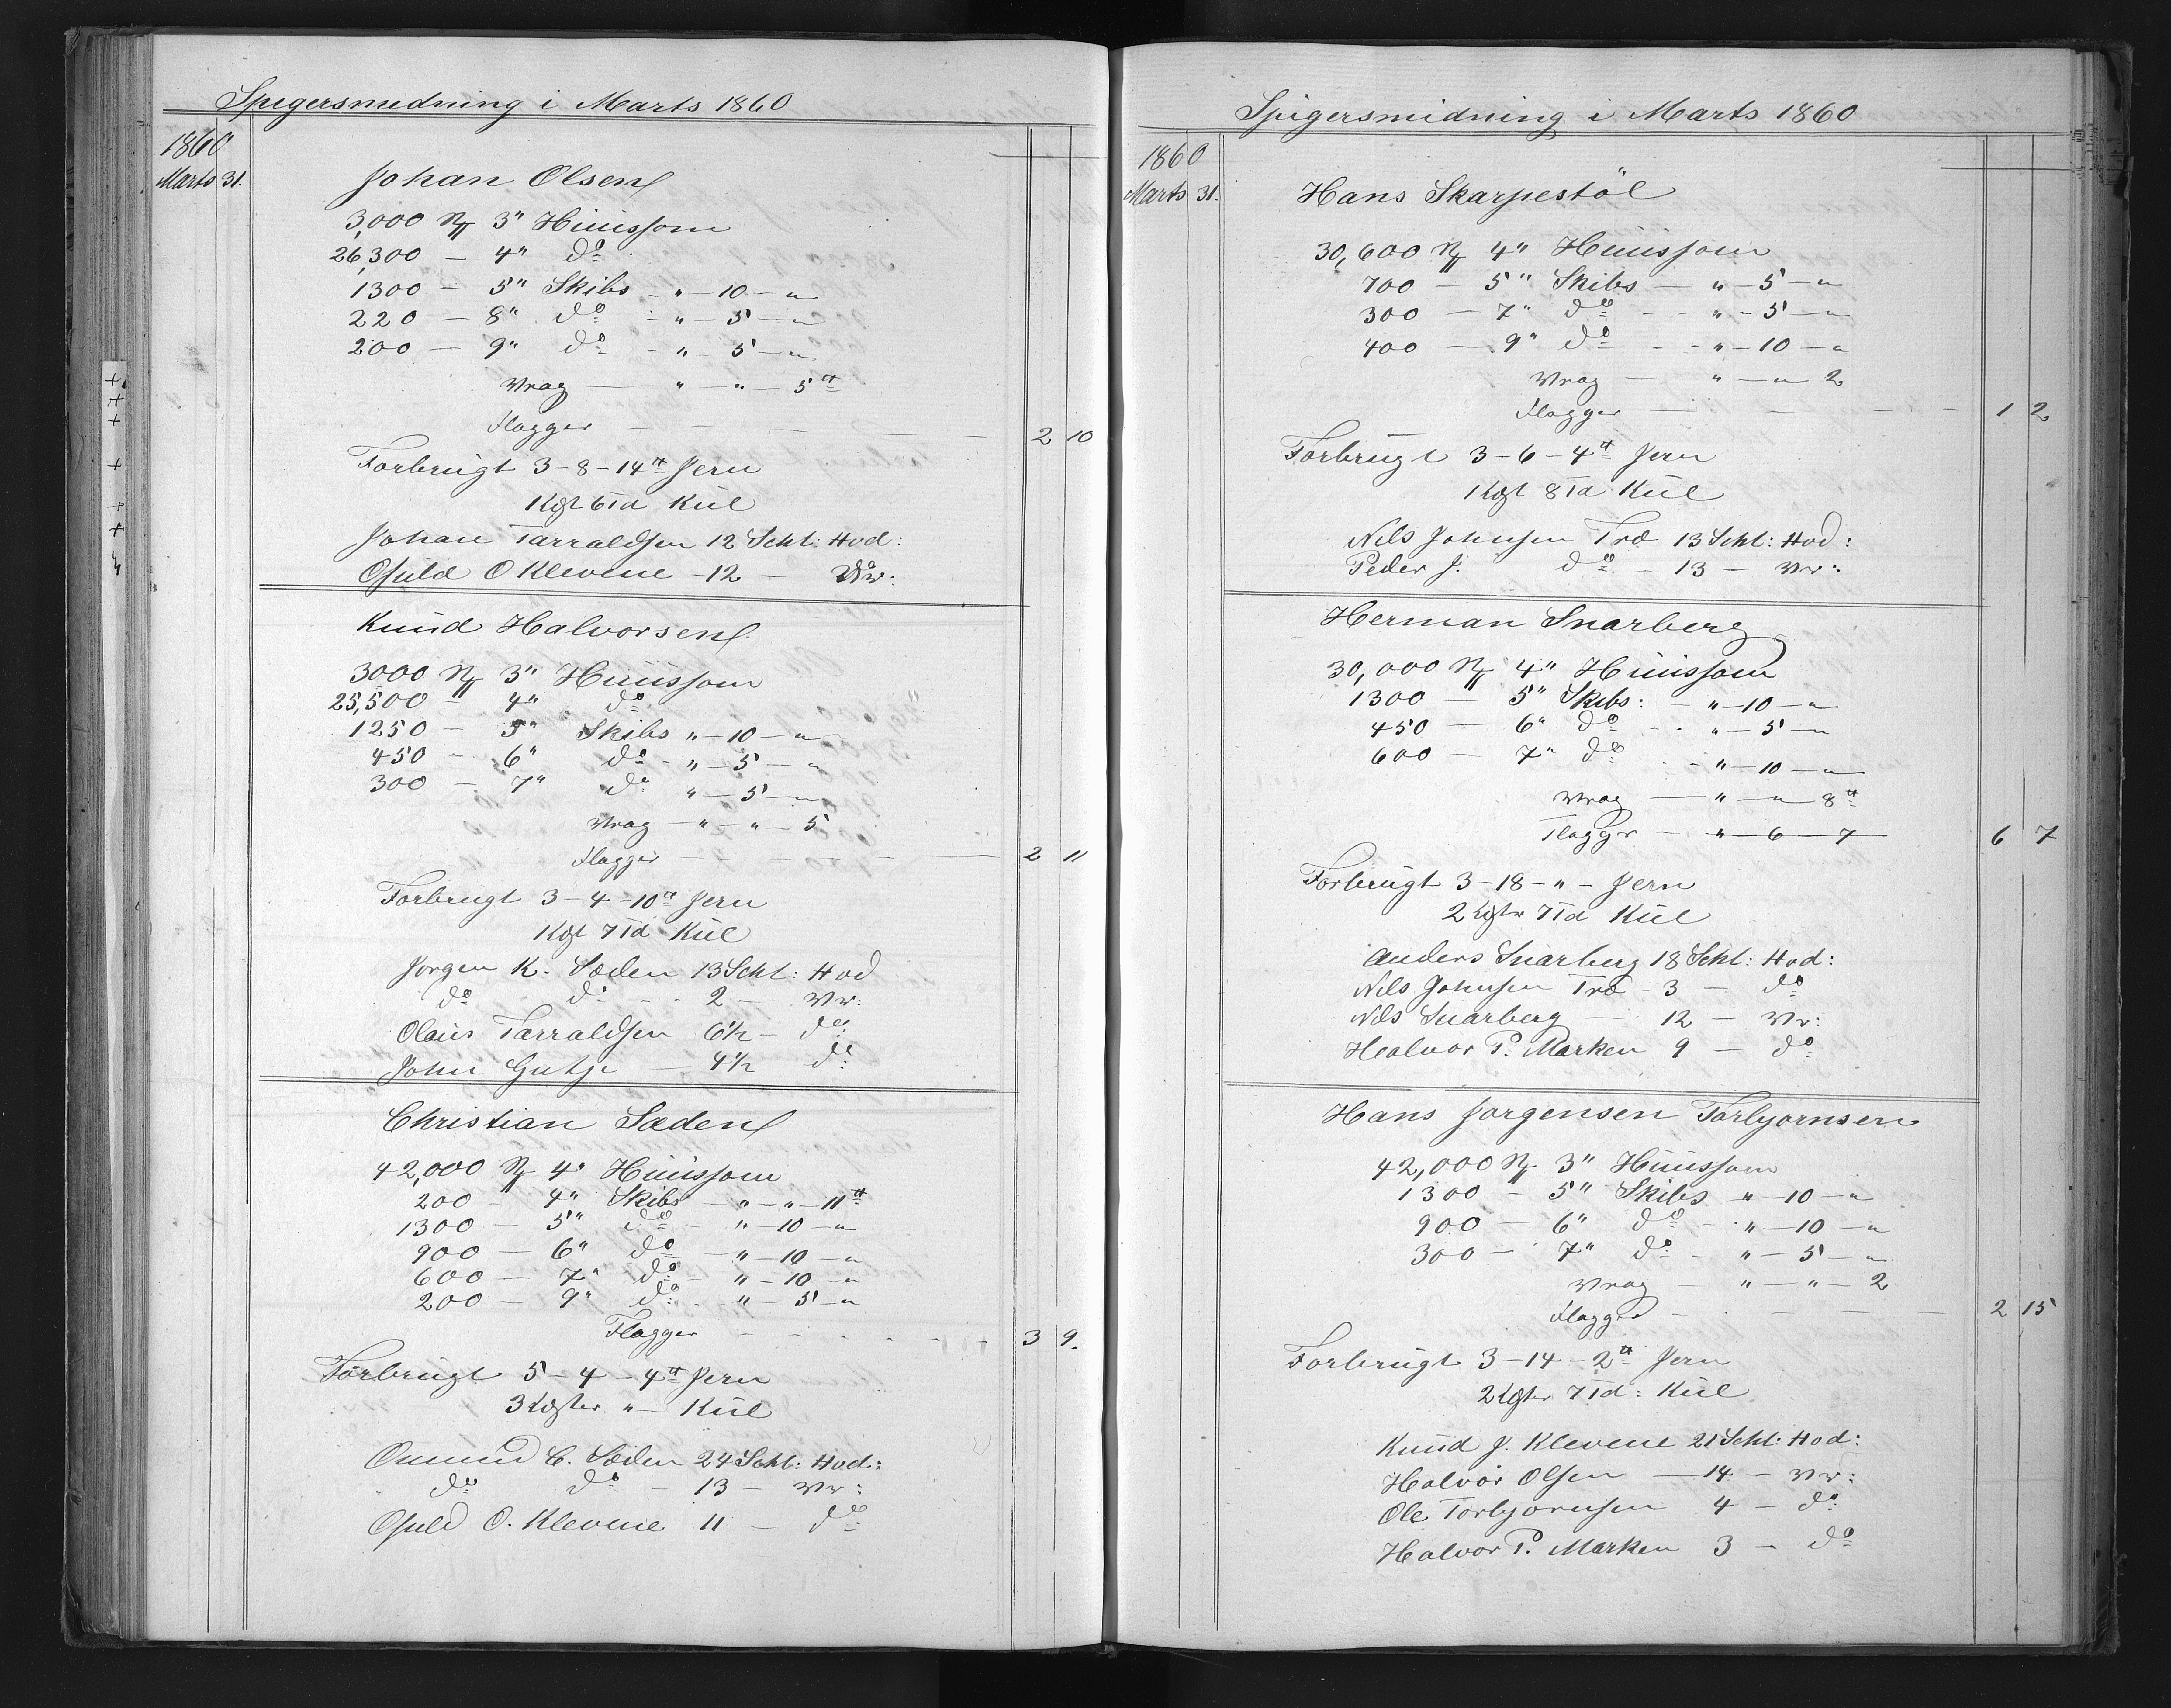 Spigersmedning i Marts 1860
1860
Marts 31.
Johan Olsen
3,000 N 3" Huussom
26,300 — 4" do
1300 — 5" Skibs - " — 10 — "
220 — 8" do - " — 5 — "
200 — 9" do - " — 5 — "
Vrag — " — " — 5 ℔
Flagger — — — — 2 10
Forbrugt 3 - 8 - 14 ℔ Jern
1 Lgt 6 Td Kul
Johan Tarraldsen 12 Scht: Hod:
Osuld O Klevene - 12 — Vr:
Knud Halvorsen
3000 N 3" Huussom
25,500 — 4" do
1250 — 5" Skibs " — 10 — "
450 — 6" do - " — 5 — "
300 — 7" do " — 5 — "
Vrag — " — " — 5
Flagger — — — — 2 11
Forbrugt 3 - 4 - 10 ℔ Jern
1 Lgt 7 Td Kul
Jorgen K. Sæden 13 Scht: Hod
do do - - 2 — Vr:
Olaus Tarraldsen 6½ — do
John Gutje — 4½ do
Christian Sæden
42,000 N 4" Huussom
200 — 4" Skibs — " — " — 11 ℔
1300 — 5" do - " — 10 — "
900 — 6" do — " — 10 — "
600 — 7" do - " — 10 — "
200 — 9" do - " — 5 — "
Flagger - - - - - - 3 9.
Forbrugt 5 — 4 — 4 ℔ Jern
3 Lgter " — Kul
Omund C. Sæden 24 Scht: Hod:
do do - 13 — Vr:
Osuld O. Klevene 11 — do
Spigersmidning i Marts 1860
1860
Marts 31.
Hans Skarpestöl
30,600 N 4" Huussom
700 — 5" Skibs — " — 5 — "
300 — 7" do - - " — 5 — "
400 — 9" do - - " — 10 — "
Vrag — " — " 2
Flagger — — — — 1 2
Forbrugt 3 - 6 - 4 ℔ Jern
1 Lgt 8 Td Kul
Nils Johnsen Træ 13 Scht: Hod:
Peder J. do - 13 — Vr:
Herman Snarberg
30,000 N 4" Huussom
1300 — 5" Skibs: - " — 10 — "
450 — 6" do - - " — 5 — "
600 — 7" do - - " — 10 — "
Vrag — " — " 8 ℔
Flagger — " — 6 — 7 — 6 7
Forbrugt 3 - 18 - " - Jern
2 Lgtr 7 Td Kul
Anders Snarberg 18 Scht: Hod:
Nils Johnsen Træ - 3 — do
Nils Snarberg — 12 — Vr:
Healvor P. Marken 9 — do
Hans Jorgensen Torbjornsen
42,000 N 3" Huussom
1300 — 5" Skibs " — 10 — "
900 — 6" do - " — 10 — "
300 — 7" do - " — 5 — "
Vrag — " — " — 2
Flagger — — — — 2 15
Forbrugt 3 - 14 - 2 ℔ Jern
2 Lgter 7 Td: Kul
Knud J. Klevene 21 Scht: Hod:
Halvor Olsen — 14 — Vr:
Ole Torbjornsen 4 — do
Healvor P. Marken 3 — do